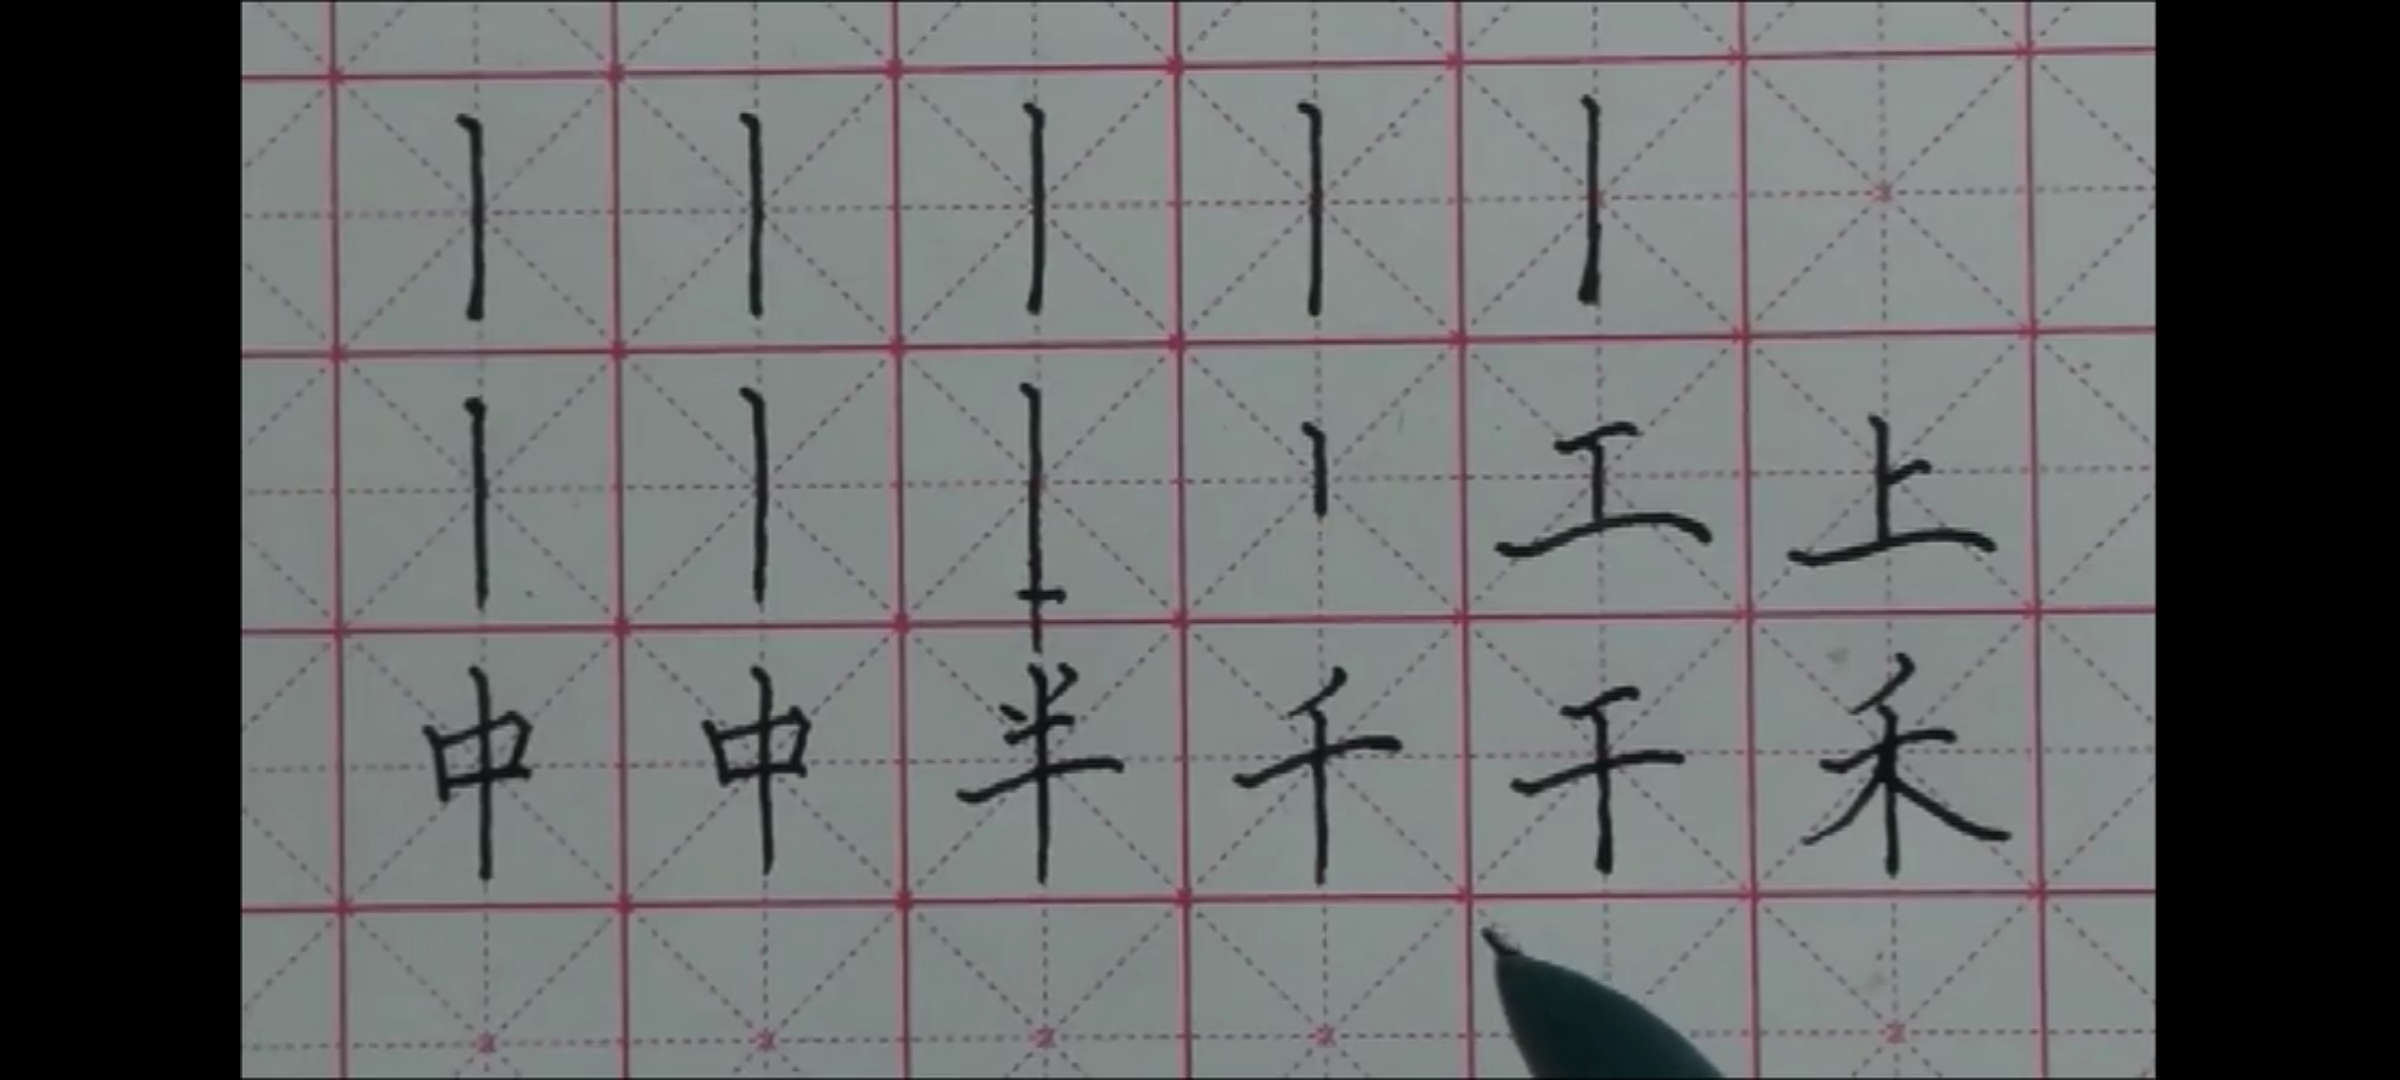 丨 丨 丨 丨 丨
丨 丨 丨 丨 工 上
中 中 半 千 干 禾